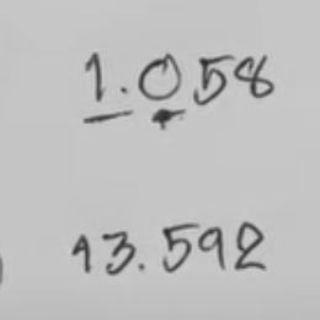 1.058
13.592